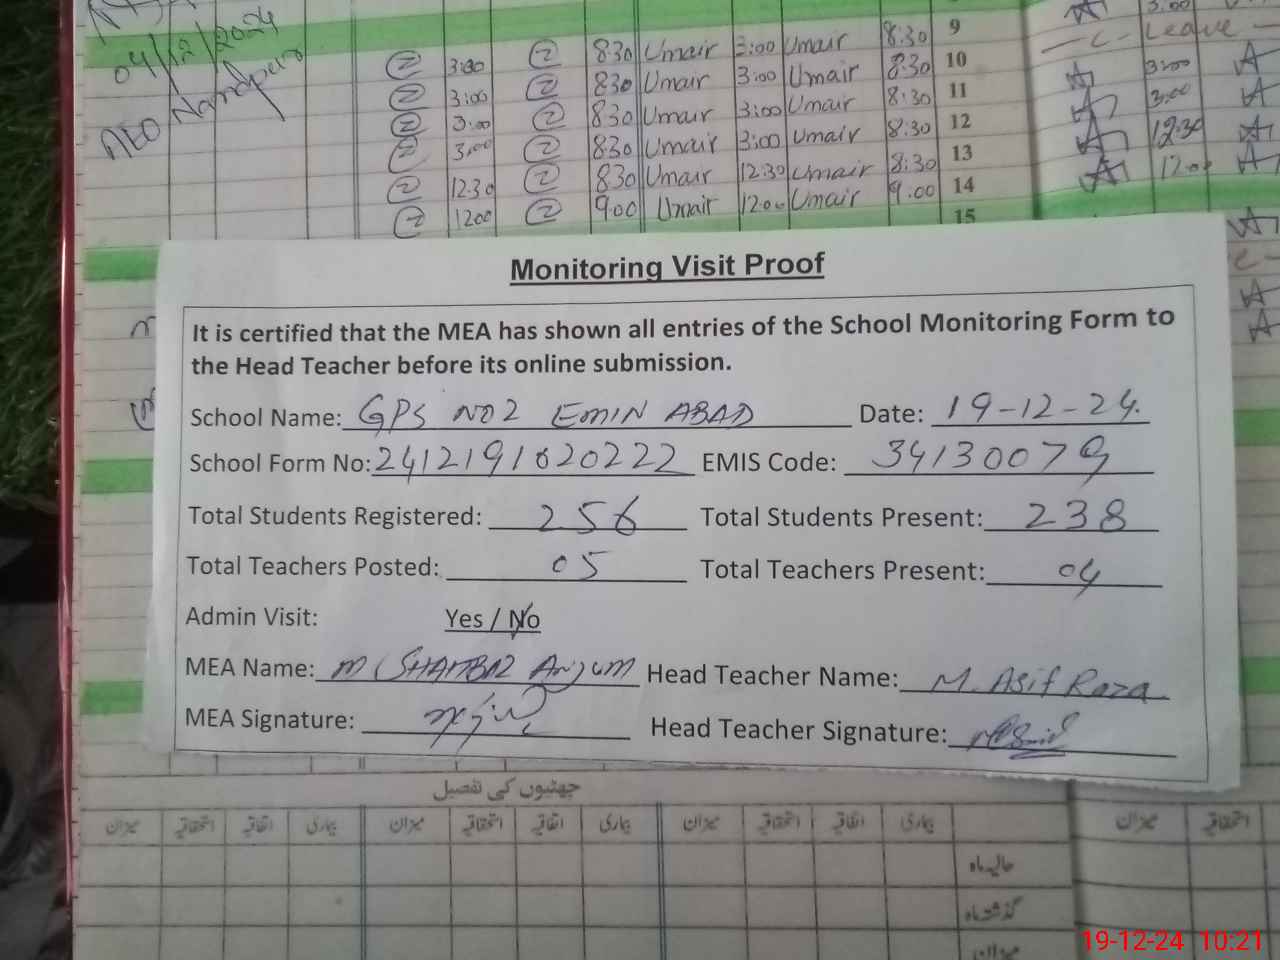 04/12/2024
AEO
② 3:00 ② 8:30 Umair 3:00 Umair 8:30 9
② 3:00 ② 8:30 Umair 3:00 Umair 8:30 10
② 3:00 ② 8:30 Umair 3:00 Umair 8:30 11
② 3:00 ② 8:30 Umair 3:00 Umair 8:30 12
② 12:30 ② 8:30 Umair 12:30 Umair 8:30 13
② 1200 ② 9:00 Umair 12:00 Umair 9:00 14
15
3:00
-C- Leave -
3:00
3:00
12:30
12:00
Monitoring Visit Proof
It is certified that the MEA has shown all entries of the School Monitoring Form to
the Head Teacher before its online submission.
School Name: GPS NO2 EMIN ABAD Date: 19-12-24.
School Form No: 2412191020222 EMIS Code: 34130079
Total Students Registered: 256 Total Students Present: 238
Total Teachers Posted: 05 Total Teachers Present: 04
Admin Visit: Yes / No
MEA Name: M SHAHBAZ ANJUM Head Teacher Name: M. Asif Raza
MEA Signature: Head Teacher Signature:
چھٹیوں کی تفصیل
بیماری اتفاقیہ استحقاقیہ میزان بیماری اتفاقیہ استحقاقیہ میزان بیماری اتفاقیہ استحقاقیہ میزان
استحقاقیہ میزان
حالیہ ماہ
گذشتہ ماہ
میزان
19-12-24 10:21